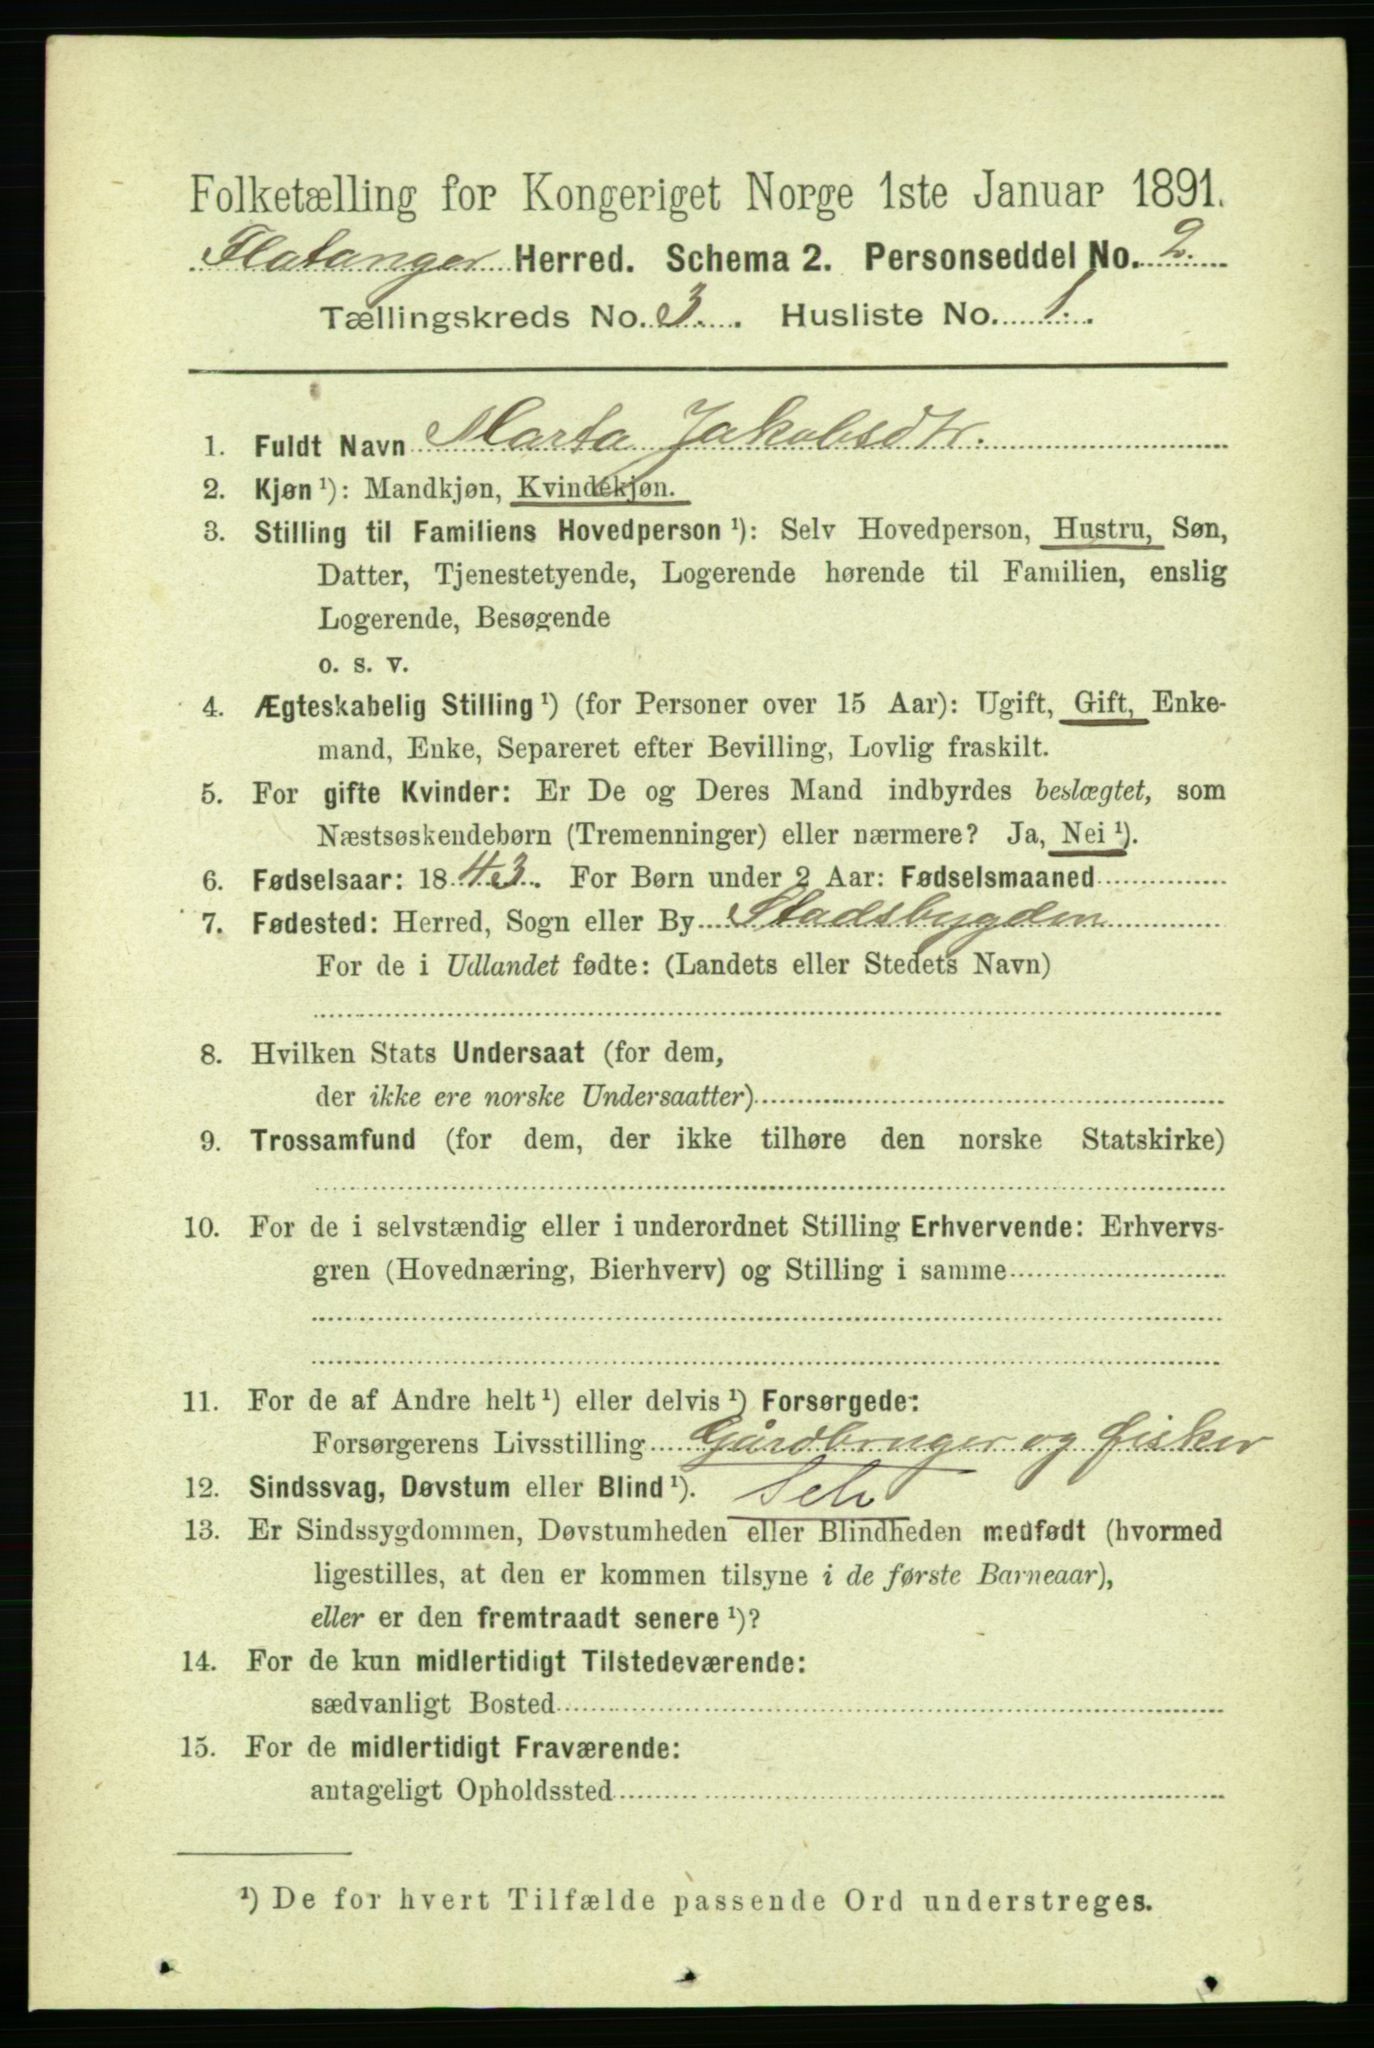 Folketælling for Kongeriget Norge 1ste Januar 1891.
Flatanger Herred. Schema 2. Personseddel No. 2.
Tællingskreds No. 3. Husliste No. 1.
1. Fuldt Navn Marta Jakobsdtr.
2. Kjøn ¹): Mandkjøn, Kvindekjøn.
3. Stilling til Familiens Hovedperson ¹): Selv Hovedperson, Hustru, Søn,
Datter, Tjenestetyende, Logerende hørende til Familien, enslig
Logerende, Besøgende
o. s. v.
4. Ægteskabelig Stilling ¹) (for Personer over 15 Aar): Ugift, Gift, Enke-
mand, Enke, Separeret efter Bevilling, Lovlig fraskilt.
5. For gifte Kvinder: Er De og Deres Mand indbyrdes beslægtet, som
Næstsøskendebørn (Tremenninger) eller nærmere? Ja, Nei ¹).
6. Fødselsaar: 1843. For Børn under 2 Aar: Fødselsmaaned
7. Fødested: Herred, Sogn eller By Stadsbygden
For de i Udlandet fødte: (Landets eller Stedets Navn)
8. Hvilken Stats Undersaat (for dem,
der ikke ere norske Undersaatter)
9. Trossamfund (for dem, der ikke tilhøre den norske Statskirke)
10. For de i selvstændig eller i underordnet Stilling Erhvervende: Erhvervs-
gren (Hovednæring, Bierhverv) og Stilling i samme
11. For de af Andre helt ¹) eller delvis ¹) Forsørgede:
Forsørgerens Livsstilling Gårdbruger og fisker
12. Sindssvag, Døvstum eller Blind ¹). Selv
13. Er Sindssygdommen, Døvstumheden eller Blindheden medfødt (hvormed
ligestilles, at den er kommen tilsyne i de første Barneaar),
eller er den fremtraadt senere ¹)?
14. For de kun midlertidigt Tilstedeværende:
sædvanligt Bosted
15. For de midlertidigt Fraværende:
antageligt Opholdssted
¹) De for hvert Tilfælde passende Ord understreges.